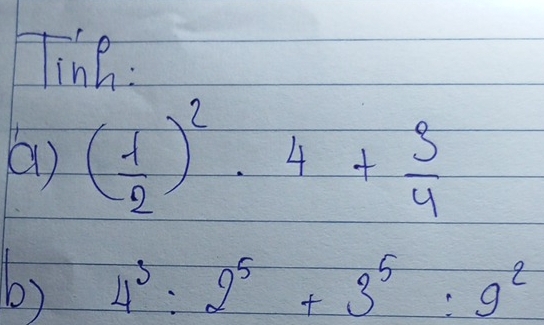 Tính:
a) (1/2)² . 4 + 3/4
b) 4³ : 2⁵ + 3⁵ : 9²